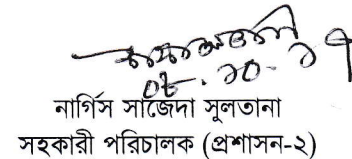 ০৮.১০.১৭
নার্গিস সাজেদা সুলতানা
সহকারী পরিচালক (প্রশাসন-২)